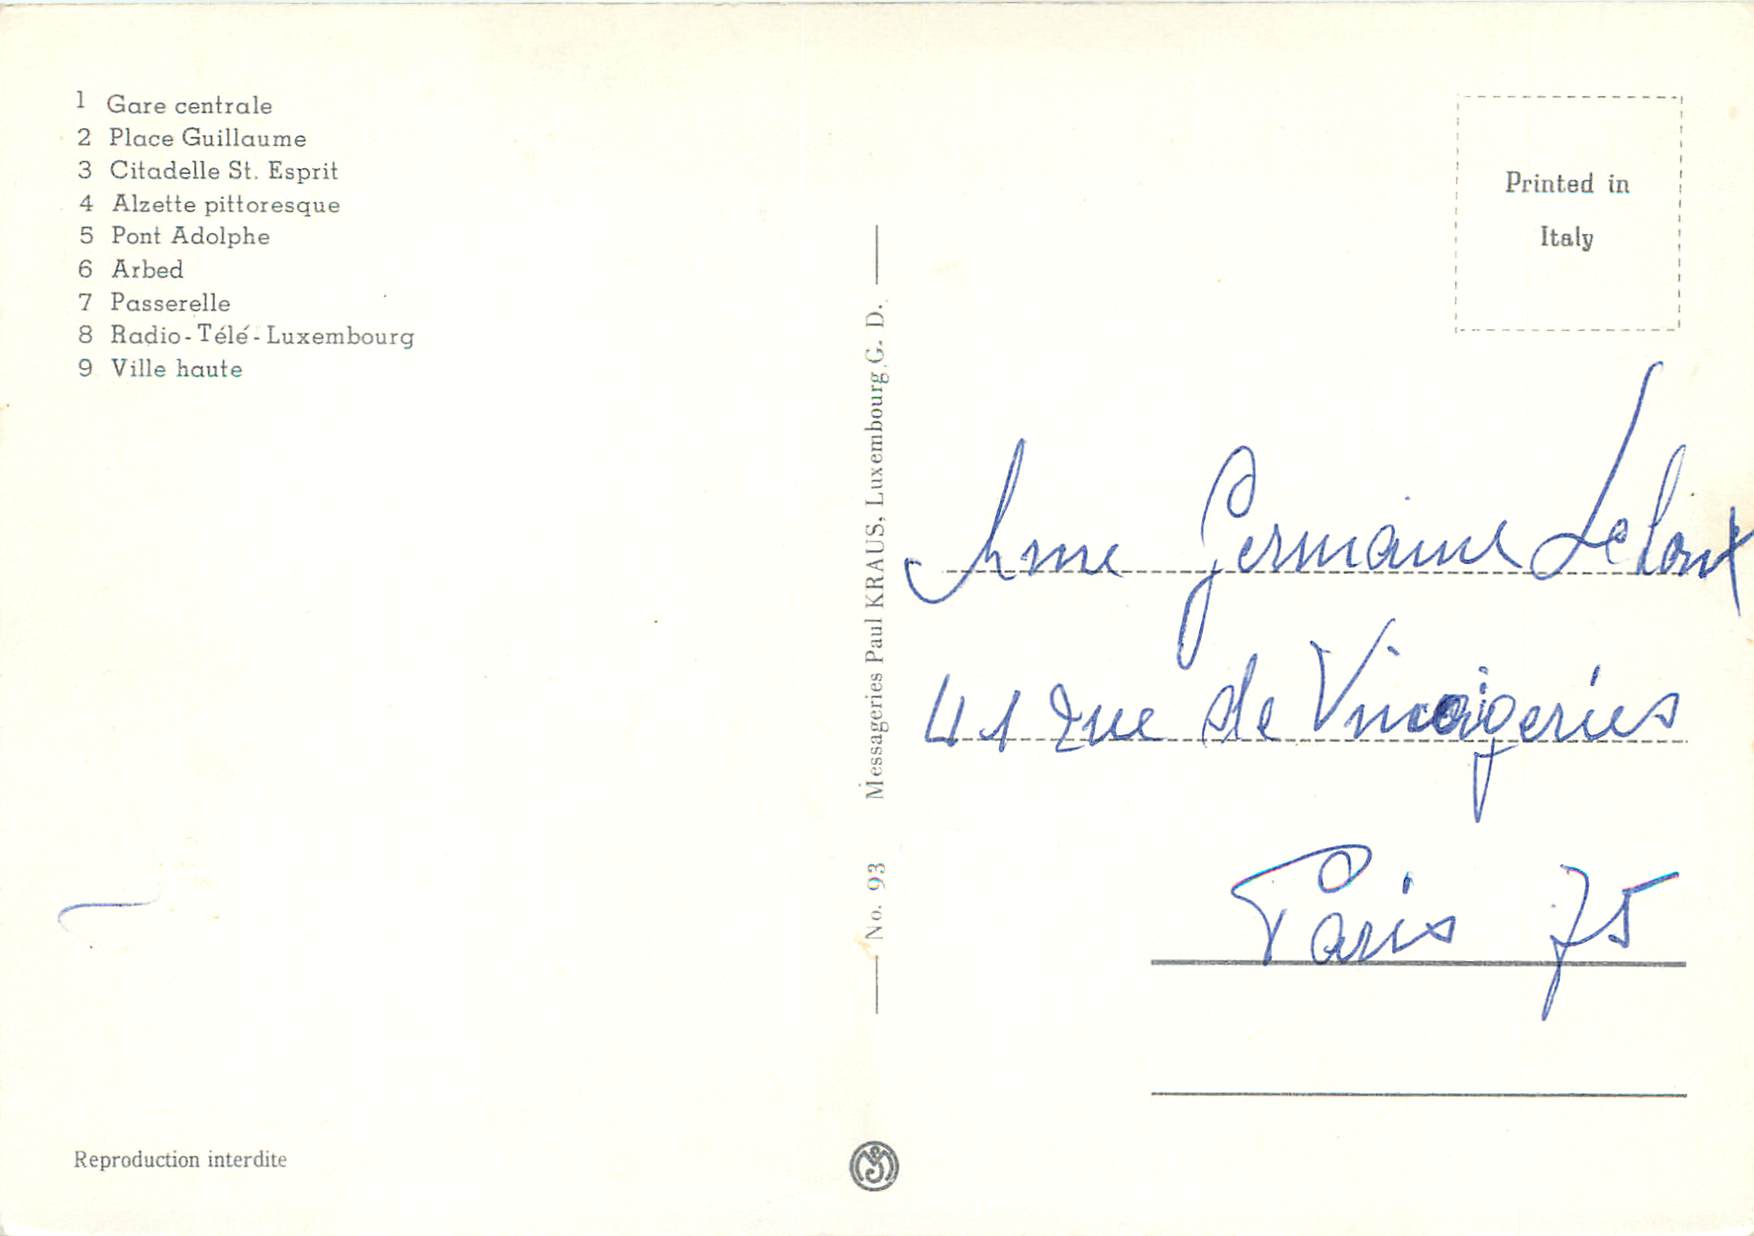 1 Gare centrale
2 Place Guillaume
3 Citadelle St. Esprit
4 Alzette pittoresque
5 Pont Adolphe
6 Arbed
7 Passerelle
8 Radio-Télé-Luxembourg
9 Ville haute
Reproduction interdite
No. 93 Messageries Paul KRAUS, Luxembourg G. D.
Printed in
Italy
Mme Germaine
41 rue de
Paris 75